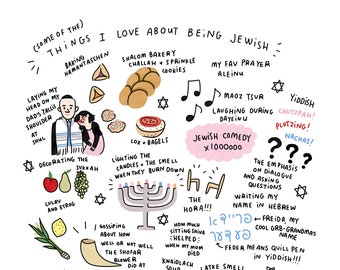 (SOME OF THE)
THINGS I LOVE ABOUT BEING JEWISH
BAKING
HAMANTASCHEN
SHALOM BAKERY
CHALLAH + SPRINKLE
COOKIES
MY FAV PRAYER
ALEINU
LAYING MY
HEAD ON MY
DAD'S TALLIS
SHOULDER
AT
SHUL
MAOZ TSUR
LAUGHING DURING
DAYEINU
YIDDISH
CHUTZPAH!
PLOTZING!
NACHAS!
LOX + BAGELS
JEWISH COMEDY
x1000000
???
DECORATING THE
SUKKAH
LIGHTING THE
CANDLES + THE SMELL
WHEN THEY BURN DOWN
THE EMPHASIS
ON DIALOGUE
AND ASKING
QUESTIONS
LULAV AND
ETROG
THE
HORA!!!
WRITING MY
NAME IN HEBREW
פריידא
פעדער
FREIDA MY
COOL GR8-GRANDMAS
NAME
GOSSIPING
ABOUT HOW
WELL OR NOT WELL
THE SHOFAR
BLOWER
DID AT
HOW MUCH
SITTING SHIVA
HELPED
WHEN MY MOM
DIED
FEDER MEANS QUILL PEN
IN YIDDISH!!!
KNAIDLACH
SOUP
LATKE SMELL